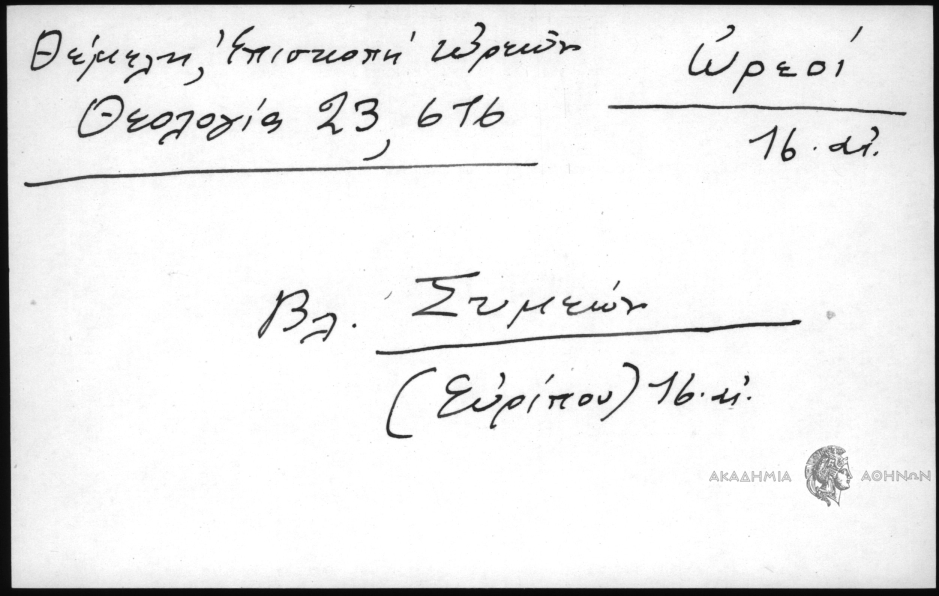 Θέμελη, Ἐπισκοπή Ὠρεῶν
Θεολογία 23, 676
Ὠρεοί
16. αἰ.
Βλ. Συμεών
(Εὐρίπου) 16. αἰ.
ΑΚΑΔΗΜΙΑ ΑΘΗΝΩΝ